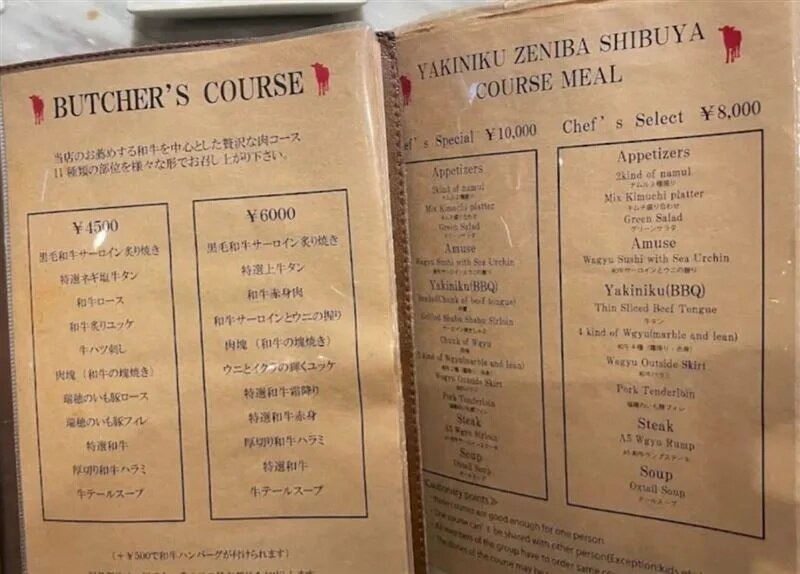 BUTCHER'S COURSE
当店のお薦めする和牛を中心とした贅沢な肉コース
11種類の部位を様々な形でお召し上がり下さい。
¥4500
黒毛和牛サーロイン炙り焼き
特選ネギ塩牛タン
和牛ロース
和牛炙りユッケ
牛ハツ刺し
肉塊（和牛の塊焼き）
瑞穂のいも豚ロース
瑞穂のいも豚フィレ
特選和牛
厚切り和牛ハラミ
牛テールスープ
¥6000
黒毛和牛サーロイン炙り焼き
特選上牛タン
和牛赤身肉
和牛サーロインとウニの握り
肉塊（和牛の塊焼き）
ウニとイクラの輝くユッケ
特選和牛霜降り
特選和牛赤身
厚切り和牛ハラミ
特選和牛
牛テールスープ
(＋¥500で和牛ハンバーグが付けられます)
YAKINIKU ZENIBA SHIBUYA
COURSE MEAL
ef's Special ¥10,000
Appetizers
2kind of namul
ナムル2種盛り
Mix Kimuchi platter
キムチ盛り合わせ
Green Salad
グリーンサラダ
Amuse
Wagyu Sushi with Sea Urchin
和牛サーロインとウニの握り
Yakiniku(BBQ)
(Chunk of beef tongue)
Grilled Shabu Shabu Sirloin
サーロイン焼きしゃぶ
Chunk of Wgyu
kind of Wgyu(marble and lean)
Wagyu Outside Skirt
和牛ハラミ
Pork Tenderloin
瑞穂のいも豚フィレ
Steak
A5 Wgyu Sirloin
Soup
Oxtail Soup
テールスープ
Chef's Select ¥8,000
Appetizers
2kind of namul
ナムル2種盛り
Mix Kimuchi platter
キムチ盛り合わせ
Green Salad
グリーンサラダ
Amuse
Wagyu Sushi with Sea Urchin
和牛サーロインとウニの握り
Yakiniku(BBQ)
Thin Sliced Beef Tongue
牛タン
4 kind of Wgyu(marble and lean)
和牛4種（霜降り・赤身）
Wagyu Outside Skirt
和牛ハラミ
Pork Tenderloin
瑞穂のいも豚フィレ
Steak
A5 Wgyu Rump
A5和牛ランプステーキ
Soup
Oxtail Soup
テールスープ
Cautionary points≫
courses are good enough for one person
One course can's be shared with other person(Exception:kids
All members of the group have to order same
The dishes of the course may be